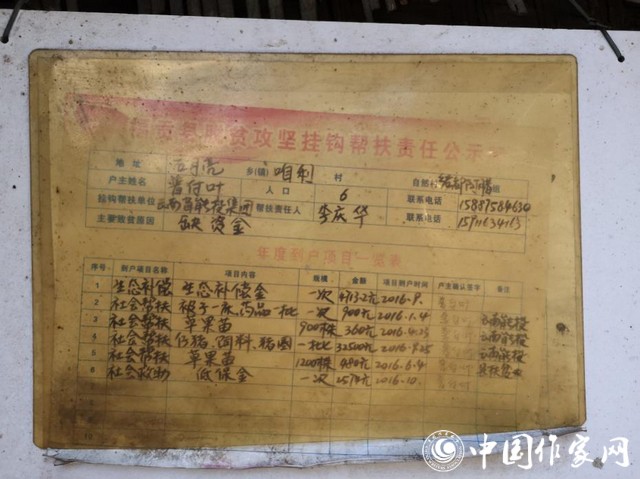 福贡县脱贫攻坚挂钩帮扶责任公示
地址 石月亮 乡(镇) 咱利 村 自然村 组
户主姓名 普付叶 人口 6 联系电话 15887584630
挂钩帮扶单位 云南省能投集团 帮扶责任人 李庆华 联系电话
主要致贫原因 缺资金
年度到户项目一览表
序号 到户项目名称 项目内容 规模 金额 项目到户时间 户主确认签字 备注
1 生态补偿 生态补偿金 一次 2016.9.
2 社会帮扶 被子一床、药品一批 一次 900元 2016.1.4 云南能投
3 社会帮扶 草果苗 900株 360元 2016.4.25 云南能投
4 社会帮扶 仔猪、饲料、猪圈 一批 3250元 2016.4.25 云南能投
5 社会帮扶 草果苗 1200株 480元 2016.6.4 县扶贫办
6 社会救助 低保金 一次 2016.10.
10
中国作家网